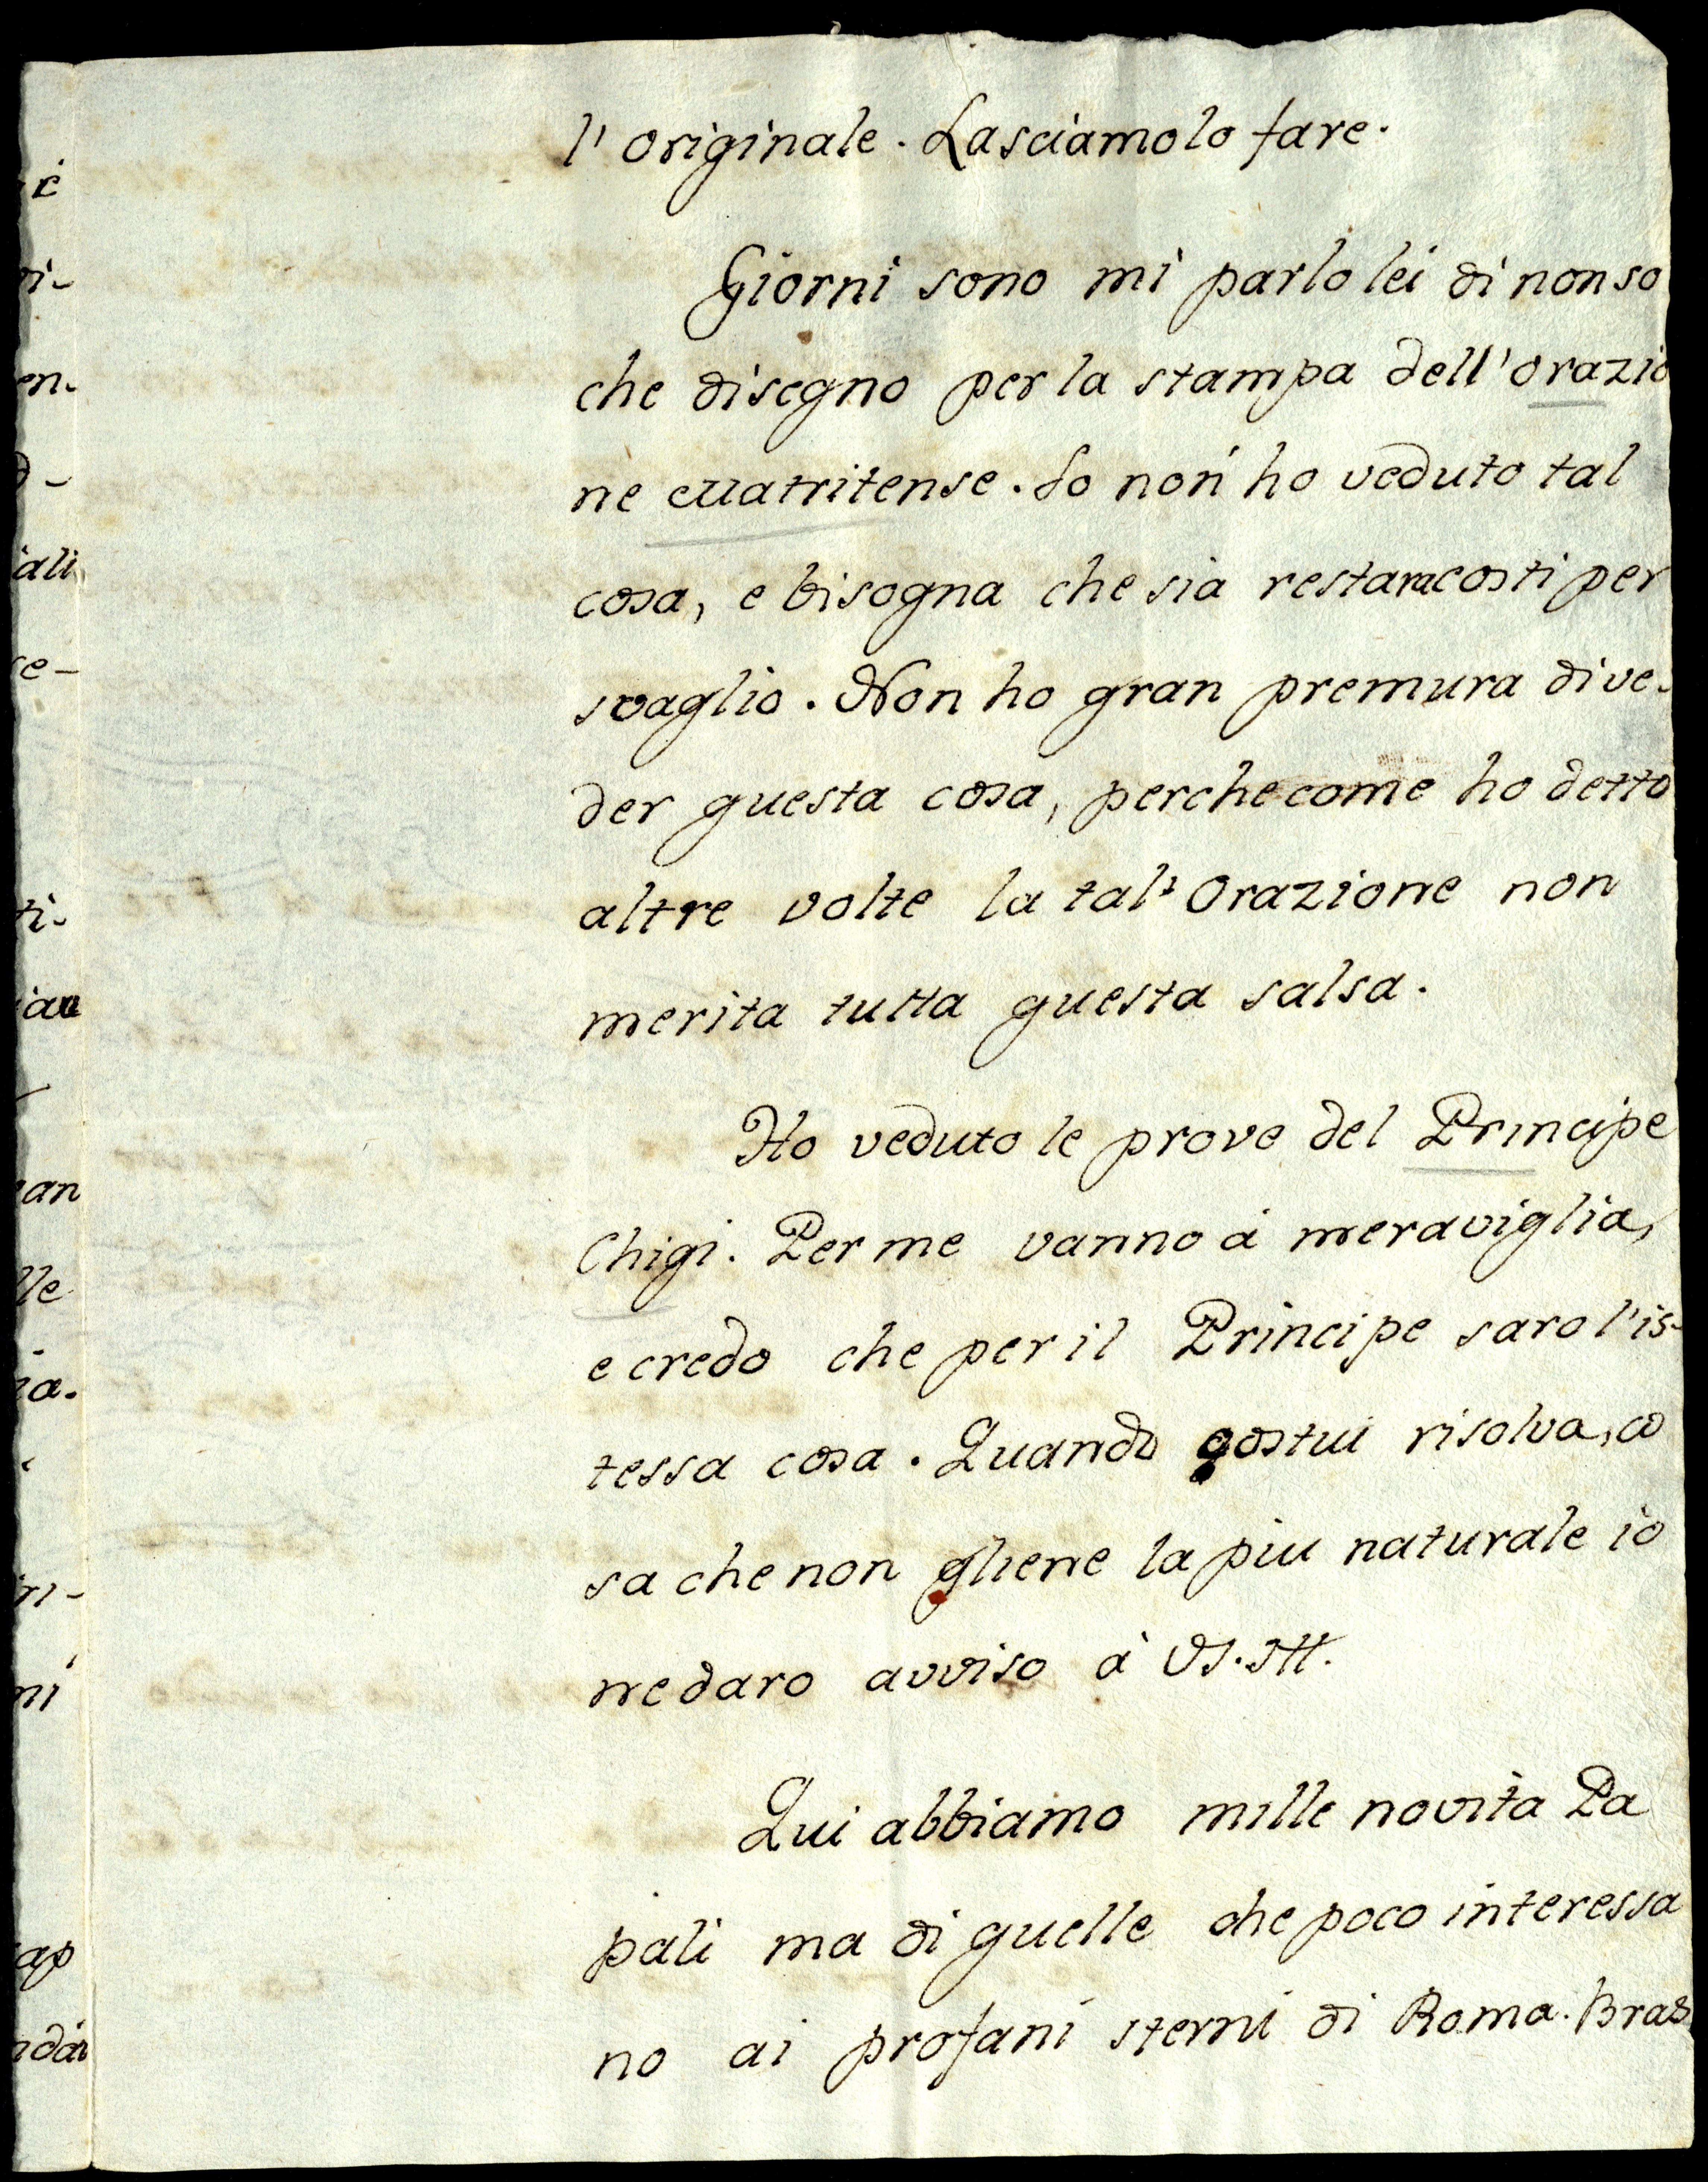 l' originale. Lasciamolo fare.
Giorni sono mi parlo lei di non so
che disegno per la stampa dell'orazio
ne Matritense. Io non ho veduto tal
cosa, e bisogna che sia restata costi per
svaglio. Non ho gran premura di ve-
der questa cosa, perche come ho detto
altre volte la tal' Orazione non
merita tutta questa salsa.
Ho veduto le prove del Principe
Chigi. Per me vanno à meraviglia,
e credo che per il Principe saro l'is-
tessa cosa. Quando costui risolva, co
sa che non gliene la piu naturale io
ne daro avviso à VS. Ill.
Qui abbiamo mille novità Pa
pali ma di quelle che poco interessa
no ai profani sterni di Roma. Bras